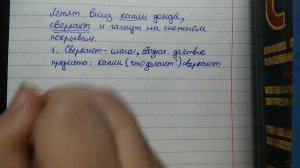 Летят вниз капли дождя,
сверкают и гаснут на снежном
покрывале.
1. Сверкают – глагол, обознач. действие
предмета: капли (что делают?) сверкают